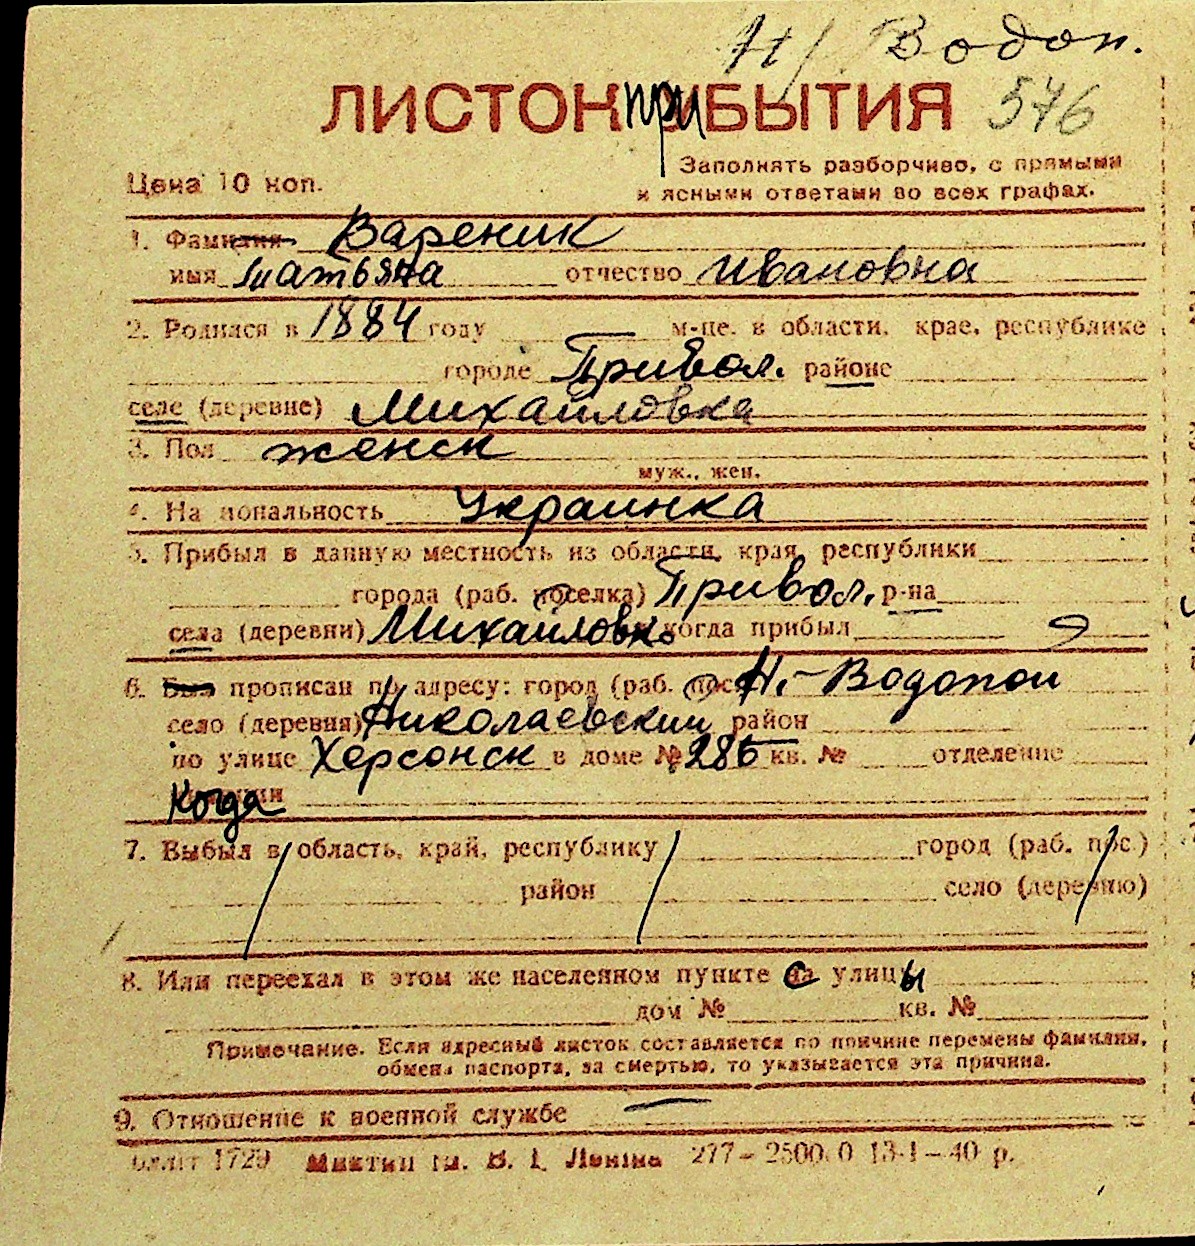 Н/ Водоп.
ЛИСТОК при БЫТИЯ 576
Заполнять разборчиво, с прямыми
Цена 10 коп.
и ясными ответами во всех графах.
1. Фамилия Вареник
имя Татьяна отчество Ивановна
2. Родился в 1884 году м-це. в области, крае, республике
городе Привол. районе
селе (деревне) Михайловка
3. Пол женск
муж., жен.
4. На иональность Украинка
5. Прибыл в данную местность из области, края, республики
города (раб. поселка) Привол. р-на
села (деревни) Михайловка когда прибыл
6. Был прописан по адресу: город (раб. пос. Н.-Водопой
село (деревня) Николаевский район
по улице Херсонск в доме № 285 кв. № отделение
когда
7. Выбыл в область, край, республику город (раб. пос.)
район село (деревню)
8. Или переехал в этом же населенном пункте с улицы
дом № кв. №
Примечание. Если адресный листок составляется по причине перемены фамилии,
обмена паспорта, за смертью, то указывается эта причина.
9. Отношение к военной службе —
1729 им. В. І. Леніна 277—2500.0 13-I—40 р.